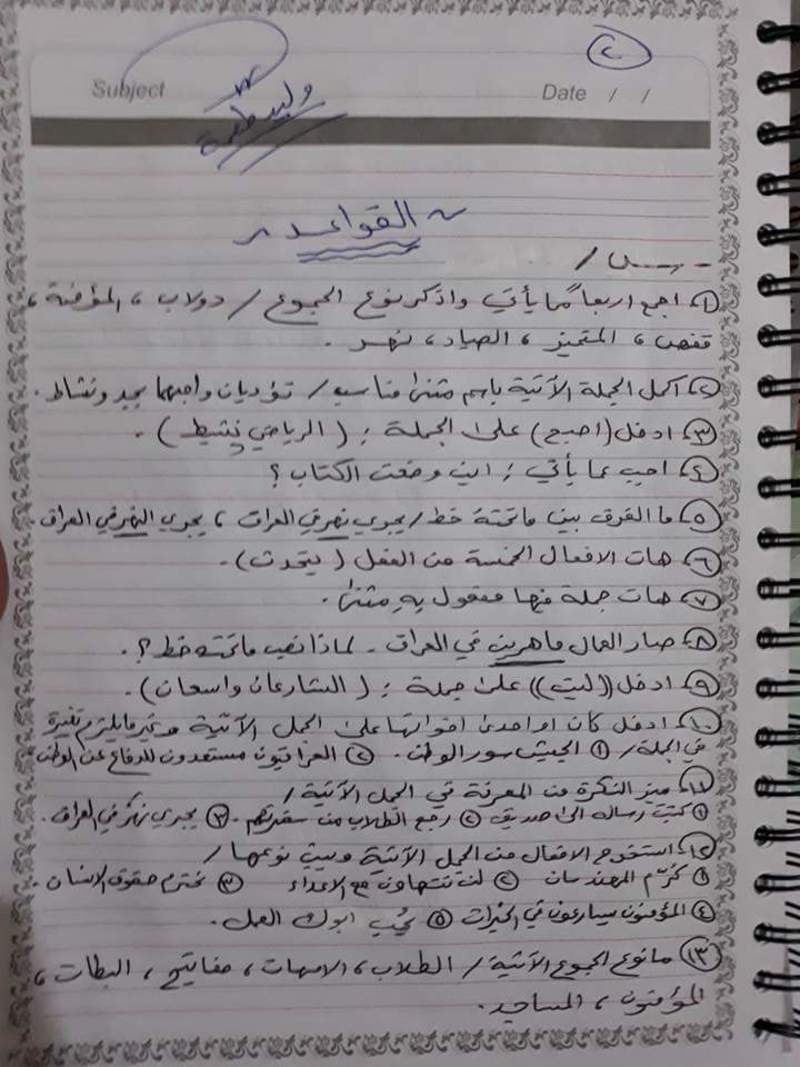 ٢
Subject
Date / /
وليد طعمة
~ القواعد ~
س /
١- اجمع اربعاً مما يأتي واذكر نوع الجموع / دولاب ، المؤمنة ،
قفص ، المتميز ، الصياد ، نهر .
٢- اكمل الجملة الآتية باسم مثنى مناسب / تؤديان واجبهما بجد ونشاط .
٣- ادخل (اصبح) على الجملة : ( الرياضي نشيط ) .
٤- اجب عما يأتي : اين وضعت الكتاب ؟
٥- ما الفرق بين ماتحته خط / يجري نهر في العراق ، يجري النهر في العراق .
٦- هات الافعال الخمسة من الفعل ( يتحدث ) .
٧- هات جملة فيها مفعول به مثنى .
٨- صار العمال ماهرين في العراق - لماذا نصب ماتحته خط ؟ .
٩- ادخل ((ليت)) على جملة : ( الشارعان واسعان ) .
١٠- ادخل كان او احدى اخواتها على الجمل الآتية وغير مايلزم تغيره
في الجملة / ١ الجيش سور الوطن . ٢ العراقيون مستعدون للدفاع عن الوطن
١١- ميز النكرة من المعرفة في الجمل الآتية /
١ كتبت رسالة الى صديقي ٢ رجع الطلاب من سفرتهم . ٣ يجري نهر في العراق .
١٢- استخرج الافعال من الجمل الآتية وبين نوعها /
١ كرّم المهندسان ٢ لن نتهاون مع الاعداء ٣ نحترم حقوق الانسان .
٤ المؤمنون يسارعون في الخيرات ٥ يُحب ابوك العمل .
١٣- مانوع الجموع الآتية / الطلاب ، الامهات ، مفاتيح ، البطات ،
المؤمنون ، المساجد .